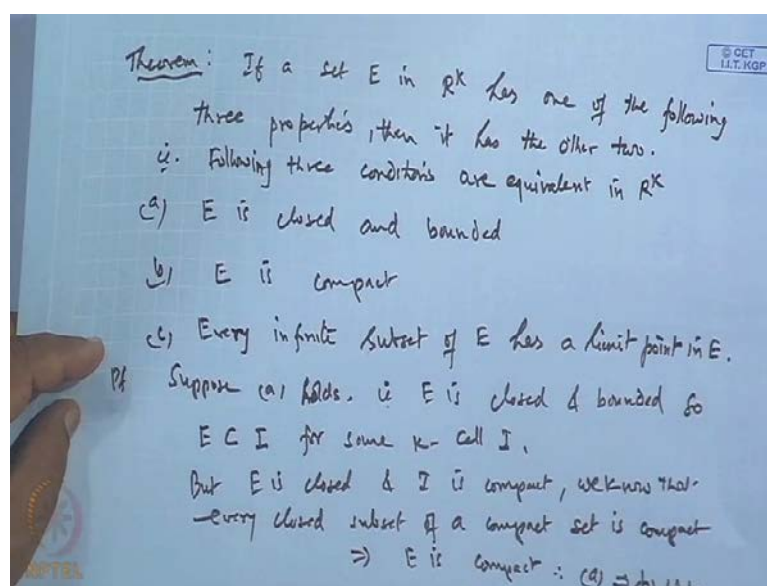 © CET
I.I.T. KGP
Theorem: If a set E in R^K has one of the following
three properties, then it has the other two.
ie. Following three conditions are equivalent in R^K
(a) E is closed and bounded
(b) E is compact
(c) Every infinite subset of E has a limit point in E.
Pf Suppose (a) holds. ie E is closed & bounded so
E ⊂ I for some K-cell I.
But E is closed & I is compact, we know that
every closed subset of a compact set is compact
⇒ E is compact ∴ (a) ⇒
NPTEL